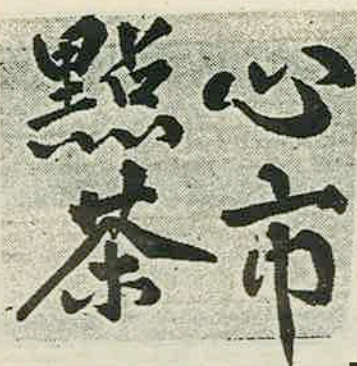 點心
茶市